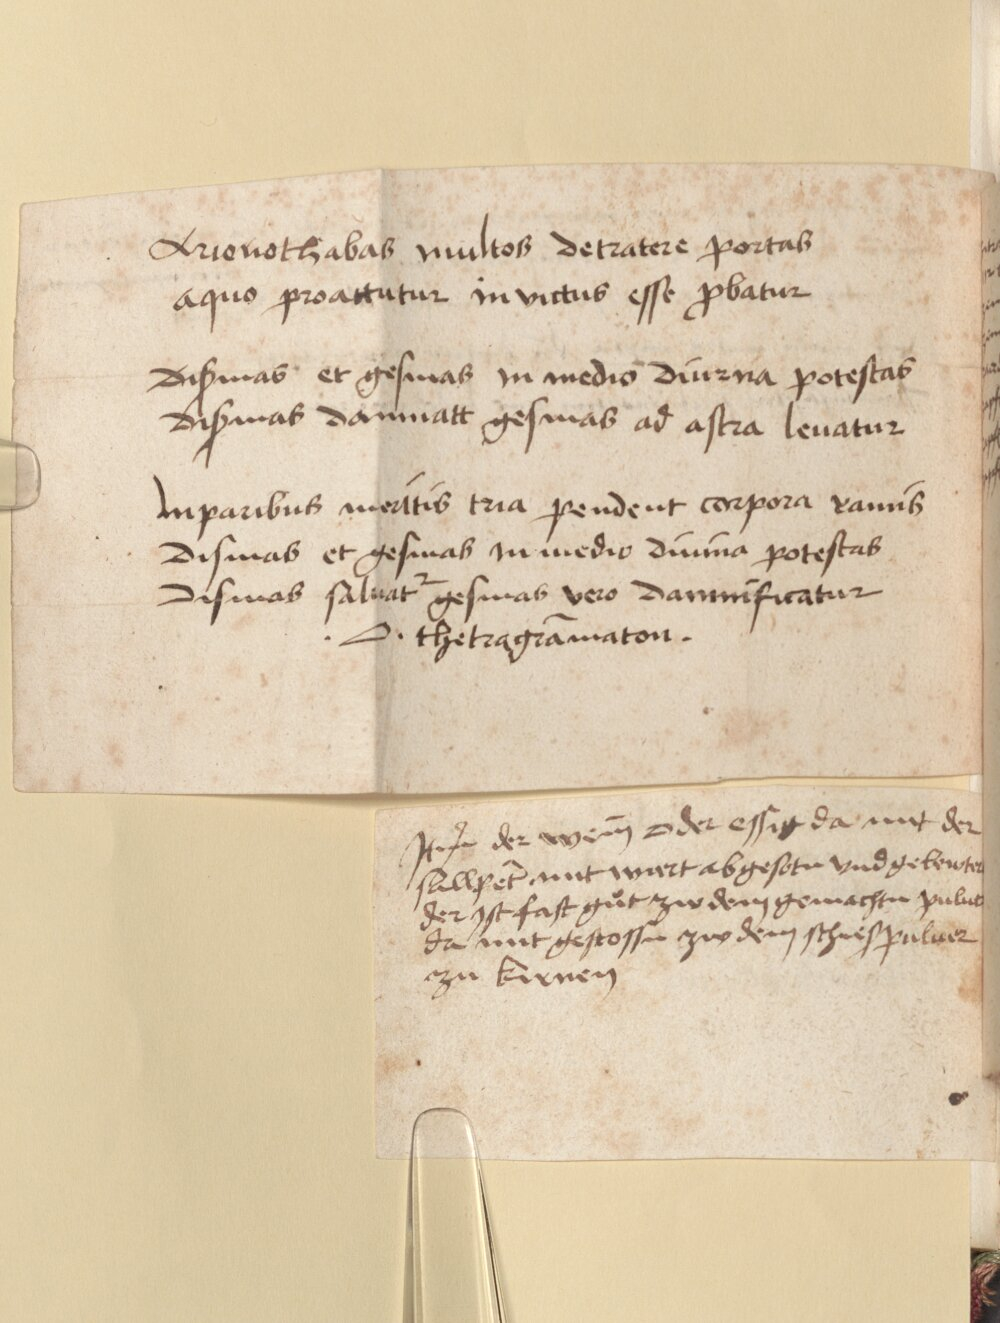 Arionothabas multos detratere portas
aquo proattutur in victus esse p̱batur
Dismas et gesmas in medio diurna potestas
Dismas damnatt gesmas ad astra leuatur
Inparibus meritis tria pendent corpora ramis
Dismas et gesmas in medio diuina potestas
Dismas saluatr gesmas vero damnificatur
thetragrāmaton.
Itm̄ der wein oder essig da mit der
sallpetr̄ mit wirt abgesotn vnd gelewter
der Ist fast gůt zw dem gemachtn puluer
da mit gestossn zw dem schiespuluer
zu kirnen